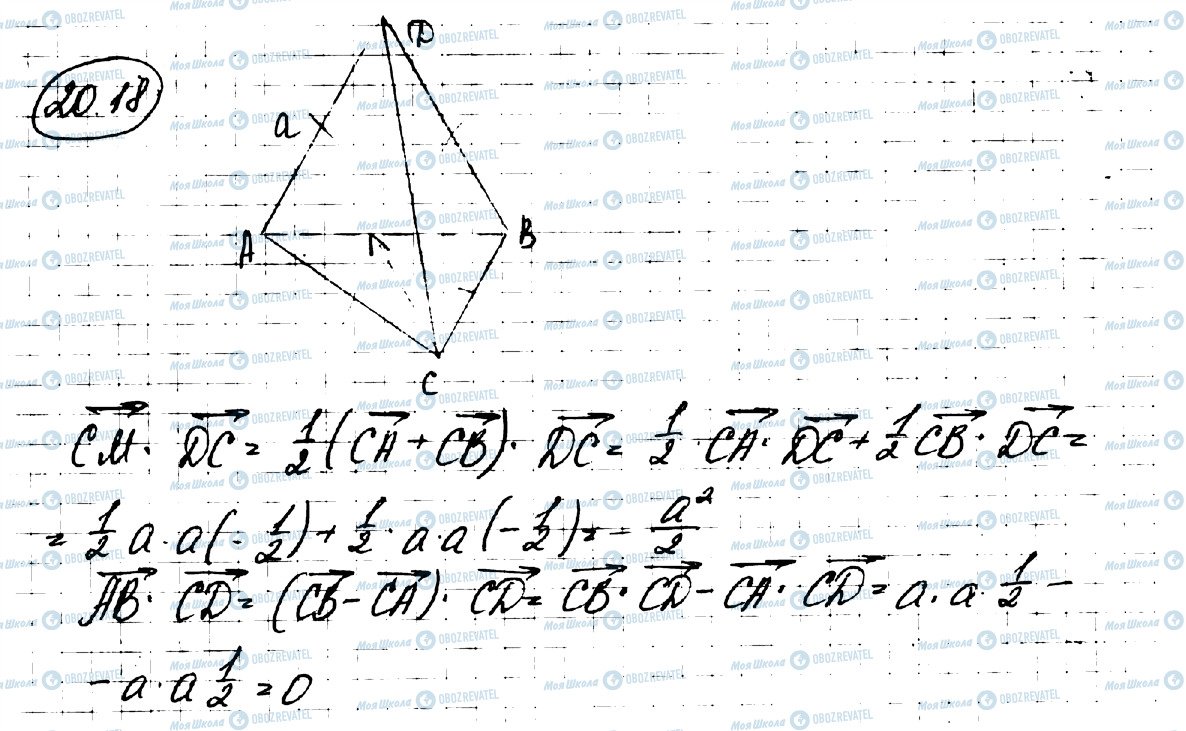 20.18
D
a
A
B
C
CM · DC = 1/2 (CA + CB) · DC = 1/2 CA · DC + 1/2 CB · DC =
= 1/2 a · a (- 1/2) + 1/2 · a · a (- 1/2) = - a²/2
AB · CD = (CB - CA) · CD = CB · CD - CA · CD = a · a · 1/2 -
- a · a 1/2 = 0
Моя Школа OBOZREVATEL